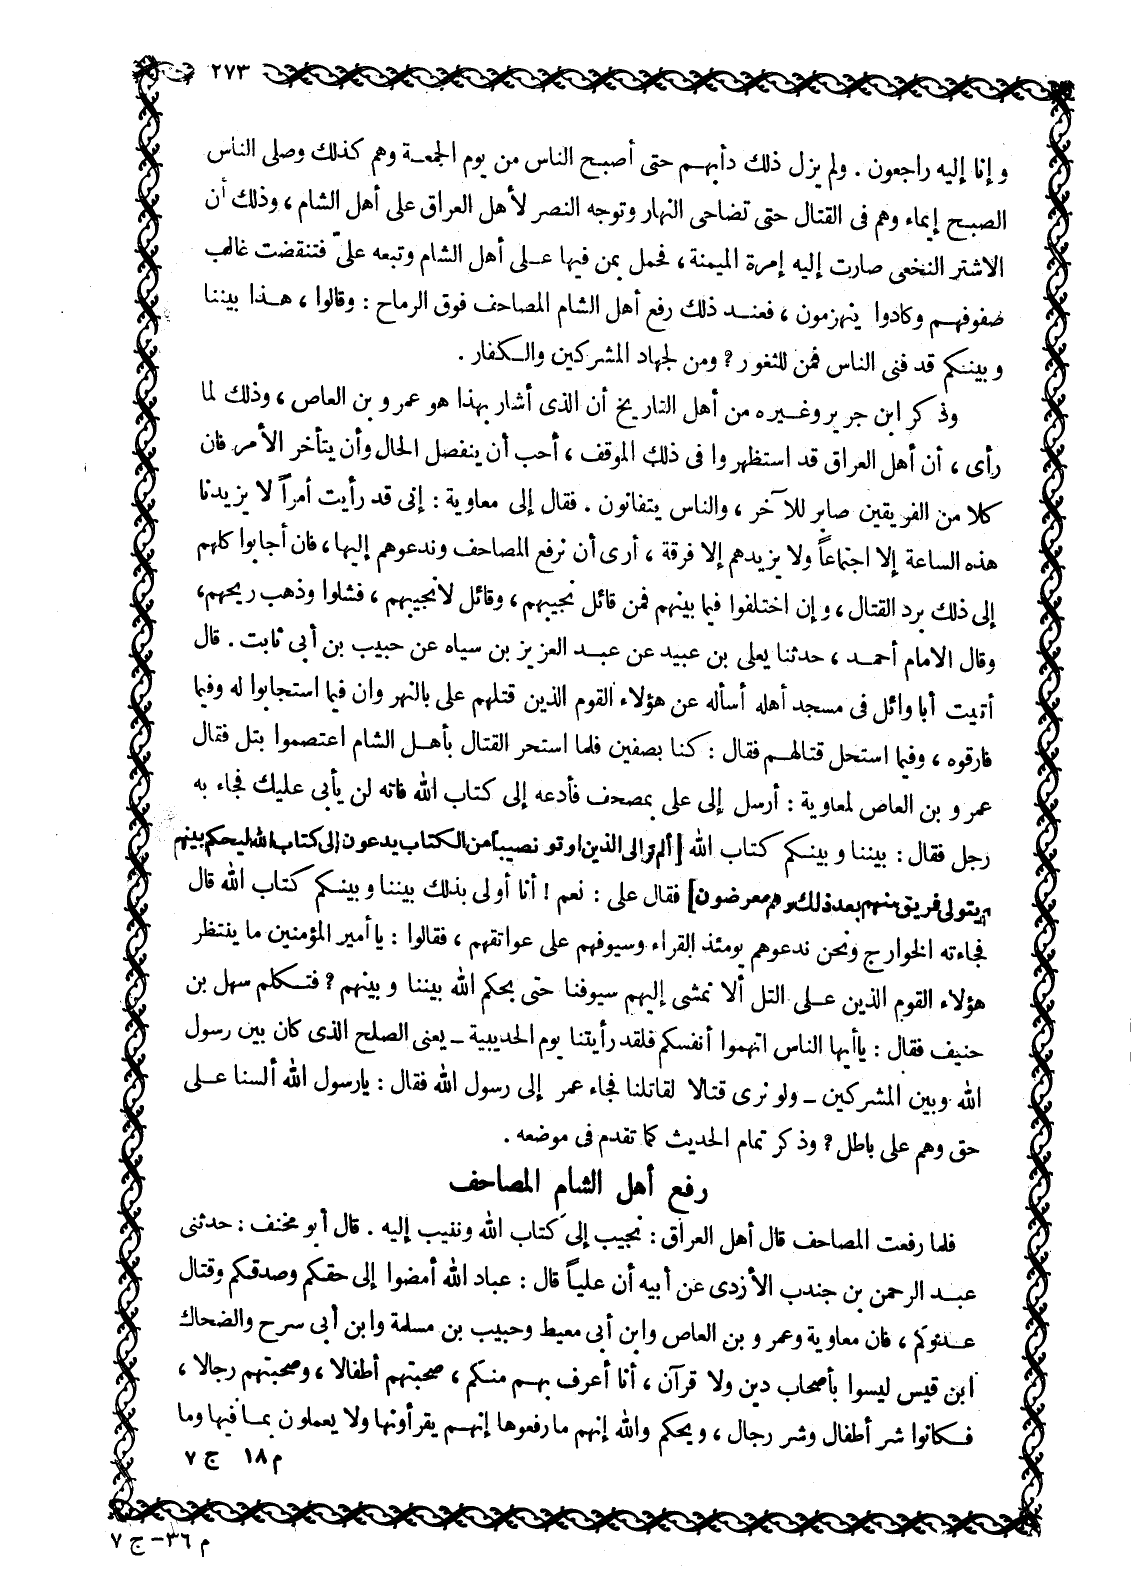 ٢٧٣
و إنا إليه راجعون . ولم يزل ذلك دأبهـم حتى أصبح الناس من يوم الجمعـة وهم كذلك وصلى الناس
الصبح إيماء وهم فى القتال حتى تضاحى النهار وتوجه النصر لأهل العراق على أهل الشام ، وذلك أن
الاشتر النخعى صارت إليه إمرة الميمنة ، فحمل بمن فيها عـلى أهل الشام وتبعه علىّ فتنقضت غالب
صفوفهـم وكادوا ينهزمون ، فعنـد ذلك رفع أهل الشام المصاحف فوق الرماح : وقالوا ، هـذا بيننا
و بينـكم قد فنى الناس فمن للثغور ? ومن لجهاد المشركين والـكفار .
وذكر ابن جرير وغـيره من أهل التاريخ أن الذى أشار بهذا هو عمرو بن العاص ، وذلك لما
رأى ، أن أهل العراق قد استظهروا فى ذلك الموقف ، أحب أن ينفصل الحال وأن يتأخر الأمر فان
كلا من الفريقين صابر للآخر ، والناس يتفانون . فقال إلى معاوية : إنى قد رأيت أمراً لا يزيدنا
هذه الساعة إلا اجتماعاً ولا يزيدهم إلا فرقة ، أرى أن نرفع المصاحف وندعوهم إليها ، فان أجابوا كلهم
إلى ذلك برد القتال ، و إن اختلفوا فيما بينهم فمن قائل نجيبهم ، وقائل لا نجيبهم ، فشلوا وذهب ريحهم ،
وقال الامام أحمـد ، حدثنا يعلى بن عبيد عن عبـد العزيز بن سياه عن حبيب بن أبى ثابت . قال
أتيت أبا وائل فى مسجد أهله أسأله عن هؤلاء القوم الذين قتلهم على بالنهروان فيما استجابوا له وفيما
فارقوه ، وفيما استحل قتالهـم فقال : كنا بصفين فلما استحر القتال بأهـل الشام اعتصموا بتل فقال
عمرو بن العاص لمعاوية : أرسل إلى على بمصحف فأدعه إلى كتاب الله فانه لن يأبى عليك فجاء به
رجل فقال : بيننا وبينـكم كتاب الله [ألم تر إلى الذين اوتو نصيباً من الكتاب يدعون إلى كتاب الله ليحكم بينهم
ثم يتولى فريق منهم بعد ذلك وهم معرضون] فقال على : نعم ! أنا أولى بذلك بيننا وبينـكم كتاب الله قال
فجاءته الخوارج ونحن ندعوهم يومئذ القراء وسيوفهم على عواتقهم ، فقالوا : يا أمير المؤمنين ما ينتظر
هؤلاء القوم الذين عـلى التل ألا نمشى إليهم سيوفنا حتى يحكم الله بيننا و بينهم ? فتـكلم سهل بن
حنيف فقال : يا أيها الناس اتهموا أنفسكم فلقد رأيتنا يوم الحديبية ـ يعنى الصلح الذى كان بين رسول
الله وبين المشركين ـ ولو نرى قتالا لقاتلنا فجاء عمر إلى رسول الله فقال : يا رسول الله ألسنا عـلى
حق وهم على باطل ? وذكر تمام الحديث كما تقدم فى موضعه .
رفع أهل الشام المصاحف
فلما رفعت المصاحف قال أهل العراق : نجيب إلى كتاب الله وننيب إليه . قال أبو مخنف : حدثنى
عبـد الرحمن بن جندب الأزدى عن أبيه أن علياً قال : عباد الله أمضوا إلى حقكم وصدقكم وقتال
عـدوكم ، فان معاوية وعمرو بن العاص وابن أبى معيط وحبيب بن مسلمة وابن أبى سرح والضحاك
ابن قيس ليسوا بأصحاب دين ولا قرآن ، أنا أعرف بهـم منكم ، صحبتهم أطفالا ، وصحبتهم رجالا ،
فـكانوا شر أطفال وشر رجال ، ويحكم والله إنهم ما رفعوها إنهـم يقرأونها ولا يعملون بمـا فيها وما
م ١٨ ج ٧
م ٣٦ – ج ٧